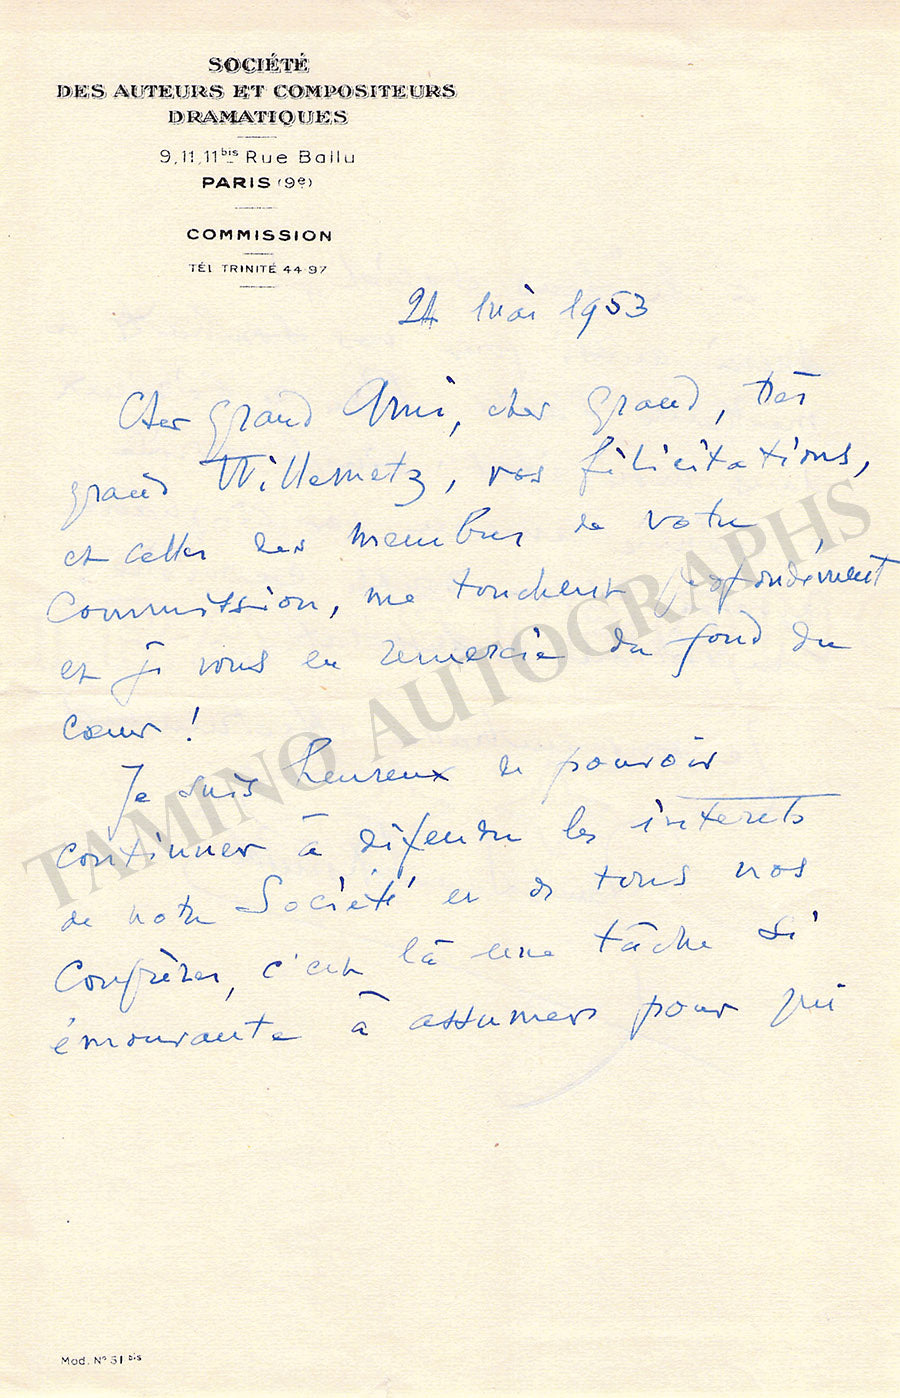 SOCIÉTÉ
DES AUTEURS ET COMPOSITEURS
DRAMATIQUES
9, 11, 11 bis Rue Ballu
PARIS (9e)
COMMISSION
TÉL TRINITÉ 44-97
24 Mai 1953
Cher grand Ami, cher grand, très
grand Willemetz, vos félicitations,
et celles des membres de votre
Commission, me touchent profondément
et je vous en remercie du fond du
cœur !
Je suis heureux de pouvoir
continuer à défendre les intérêts
de notre Société et de tous nos
Confrères, c'est là une tâche si
émouvante à assumer pour qui
TAMINO AUTOGRAPHS
Mod. N° 51 bis